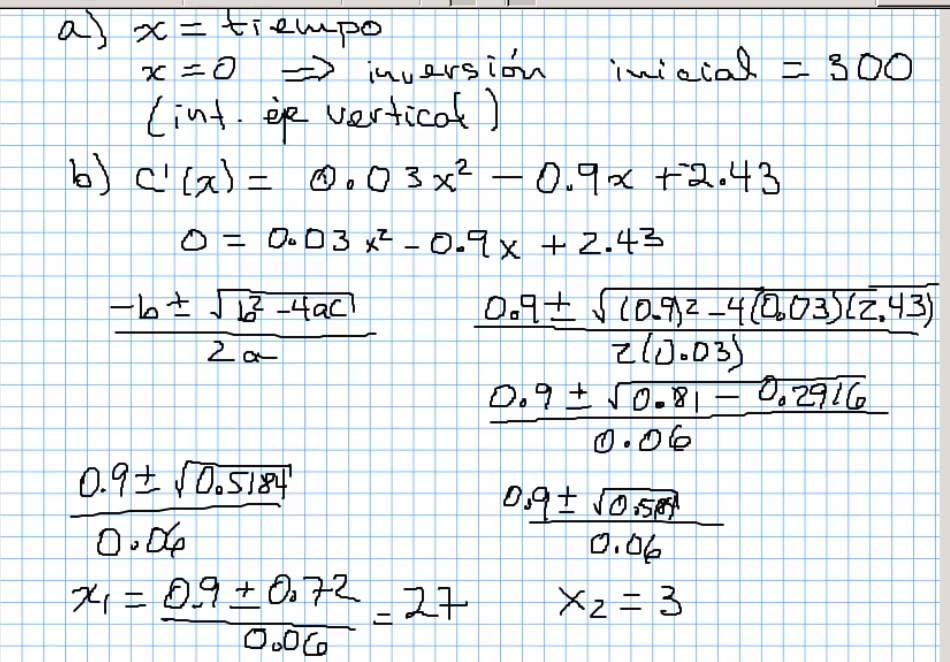 a) x = tiempo
x = 0 ⇒ inversión inicial = 300
(int. eje vertical)
b) C'(x) = 0.03x² - 0.9x + 2.43
0 = 0.03x² - 0.9x + 2.43
-b ± √(b² - 4ac) / 2a
0.9 ± √((0.9)2 - 4(0.03)(2.43)) / 2(0.03)
0.9 ± √(0.81 - 0.2916) / 0.06
0.9 ± √0.5184 / 0.06
0.9 ± √0.584 / 0.06
x₁ = 0.9 ± 0.72 / 0.06 = 27
x₂ = 3